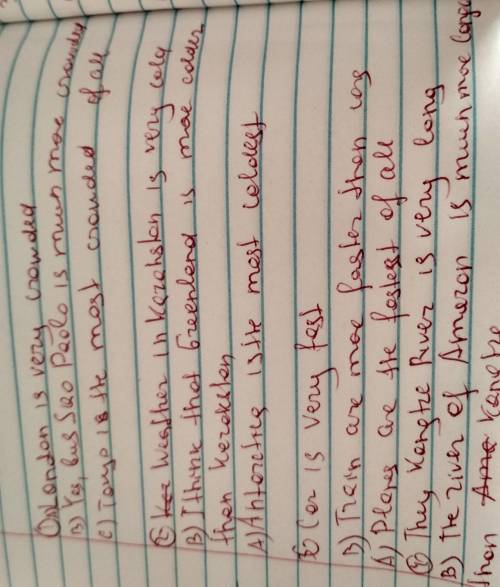 London is very crowded
B) Yes, but Sao Paolo is much more crowded
C) Tokyo is the most crowded of all
Weather in Kazahstan is very cold
B) I think that Greenland is more colder
than Kazakstan
A) Antarctica is the most coldest
Car is very fast
B) Train are more faster than cars
A) Planes are the fastest of all
They Kangtze River is very long
B) The river of Amazon is much more longer
than Kangtze